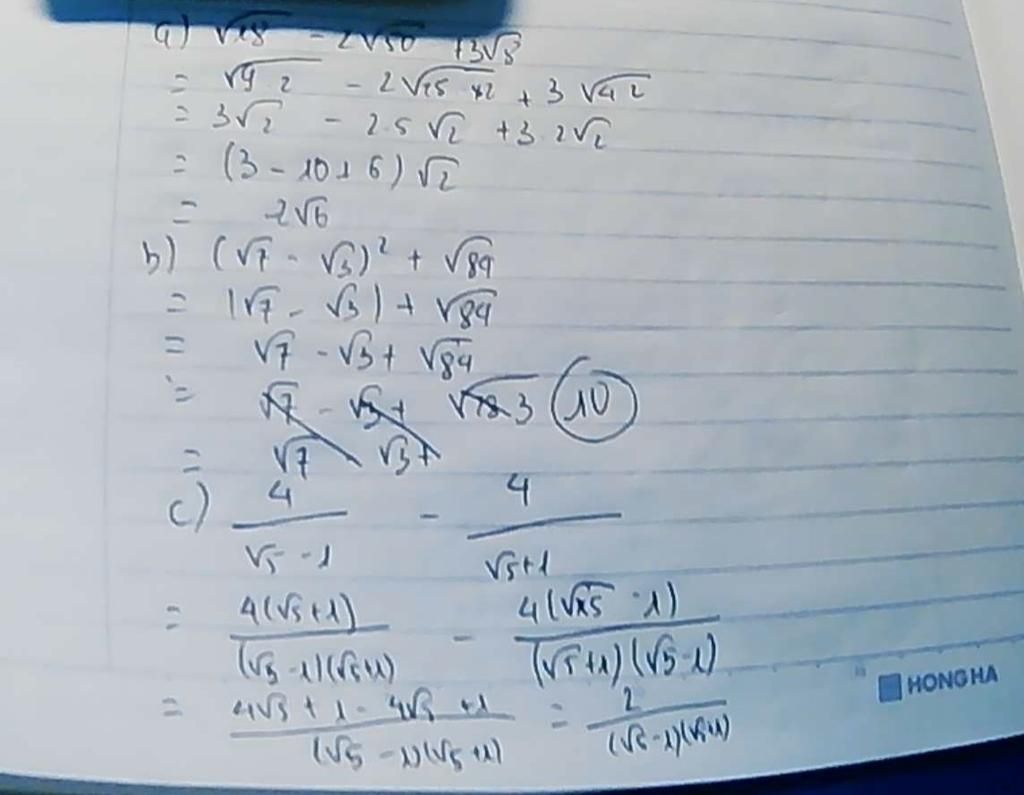 a) √18 - 2√50 + 3√8
= √9 2 - 2√25 × 2 + 3 √4 2
= 3√2 - 2.5 √2 + 3.2√2
= (3 - 10 + 6) √2
= -2√6
b) (√7 - √3)² + √84
= |√7 - √3| + √84
= √7 - √3 + √84
= √7 - √3 + 3 10
= √7 √3 +
c) 4/(√5 - 1) - 4/(√5 + 1)
= 4(√5 + 1)/((√5 - 1)(√5 + 1)) - 4(√5 - 1)/((√5 + 1)(√5 - 1))
HONG HA
= (4√5 + 1 - 4√5 + 1)/((√5 - 1)(√5 + 1)) = 2/((√5 - 1)(√5 + 1))